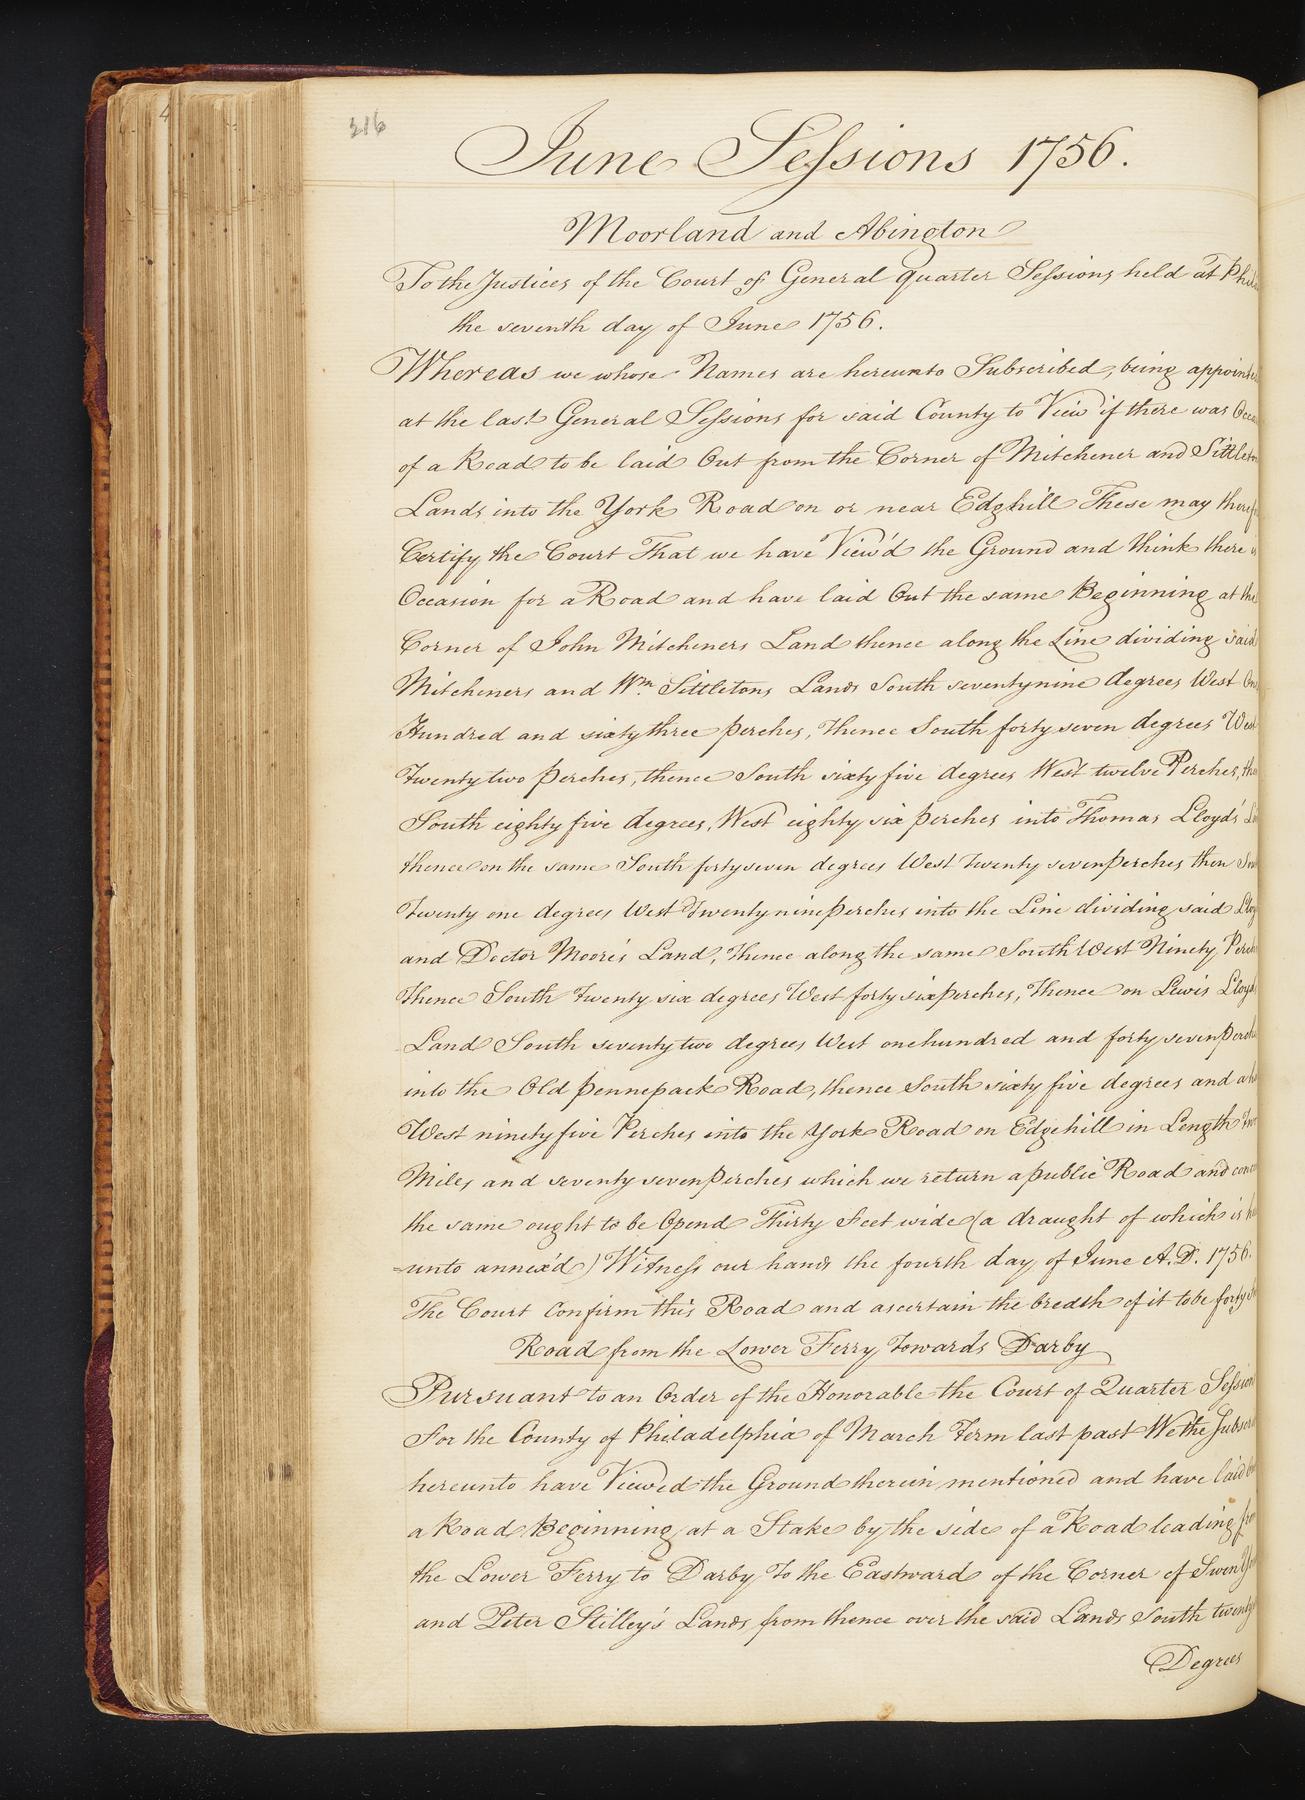 216
June Sessions 1756.
Moorland and Abington
To the Justices of the Court of General quarter Sessions held at Phila
the seventh day of June 1756.
Whereas we whose Names are hereunto Subscribed, being appointed
at the last General Sessions for said County to View if there was Occa
of a Road to be laid Out from the Corner of Mitchener and Sittleton
Lands into the York Road on or near Edghill These may theref
Certify the Court That we have View'd the Ground and think there is
Occasion for a Road and have laid Out the same Beginning at the
Corner of John Mitcheners Land thence along the Line dividing said
Mitcheners and Wm. Sittletons Lands South seventy nine degrees West One
Hundred and sixty three perches, thence South forty seven degrees West
Twenty two perches, thence South sixty five degrees West twelve Perches, the
South eighty five degrees, West eighty six perches into Thomas Lloyd's Li
thence on the same South forty seven degrees West Twenty seven perches then Sou
Twenty one degrees West Twenty nine perches into the Line dividing said Lloy
and Doctor Moore's Land, thence along the same South West Ninety Perch
thence South Twenty six degrees West forty six perches, thence on Lewis Lloyds
Land South seventy two degrees West one hundred and forty seven perches
into the Old pennepack Road, thence South sixty five degrees and a ha
West ninety five Perches into the York Road on Edgehill in Length Two
Miles and seventy seven perches which we return a public Road and conc
the same ought to be Opend Thirty Feet wide (a draught of which is he
=unto annex'd) Witness our hands the fourth day of June A.D. 1756.
The Court Confirm this Road and ascertain the bredth of it to be forty
Road from the Lower Ferry towards Darby
Pursuant to an Order of the Honorable the Court of Quarter Session
For the County of Philadelphia of March Term last past We the Subscr
hereunto have Viewed the Ground therein mentioned and have laid
a Road Beginning at a Stake by the side of a Road leading fro
the Lower Ferry to Darby to the Eastward of the Corner of Swen
and Peter Stilley's Lands from thence over the said Lands South twenty
Degrees